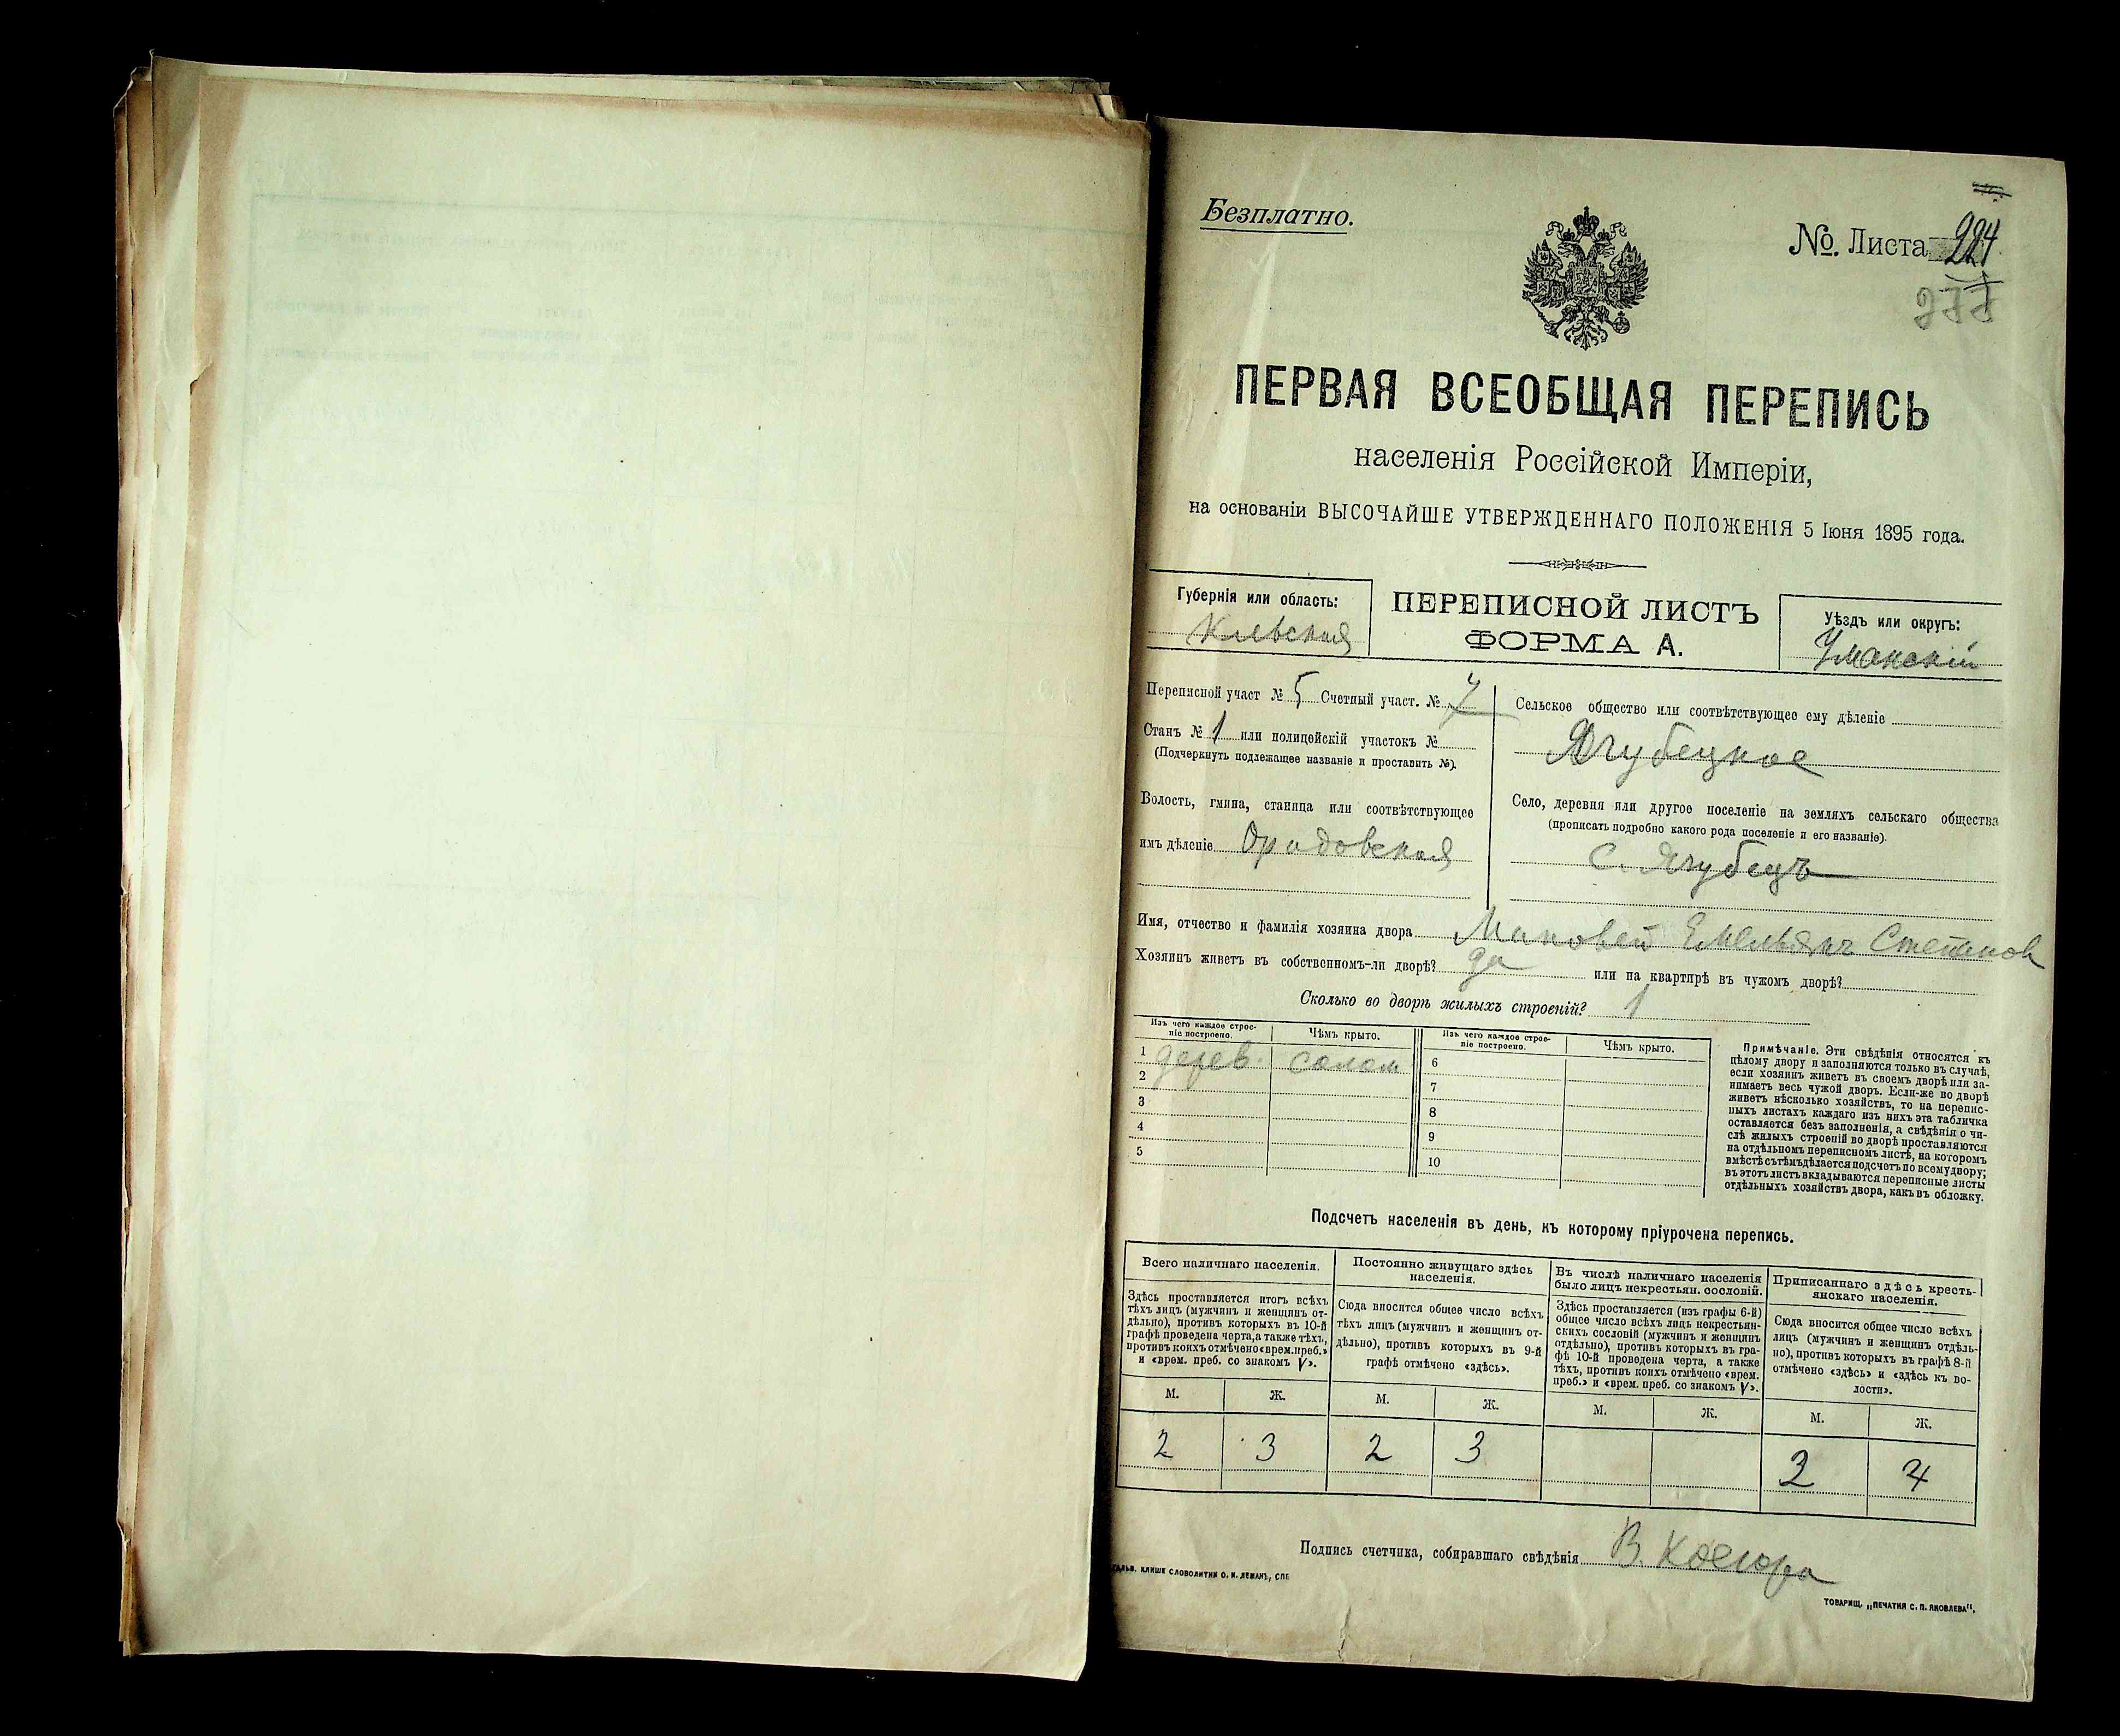 Безплатно.
№. Листа 224
277
ПЕРВАЯ ВСЕОБЩАЯ ПЕРЕПИСЬ
населенія Россійской Имперіи,
на основаніи ВЫСОЧАЙШЕ УТВЕРЖДЕННАГО ПОЛОЖЕНІЯ 5 Іюня 1895 года.
Губернія или область:
Кіевская
ПЕРЕПИСНОЙ ЛИСТЪ
ФОРМА А.
Уѣздъ или округъ:
Уманскій
Переписной участ № 5 Счетный участ. № 7
Станъ № 1 или полицейскій участокъ №
(Подчеркнуть подлежащее названіе и проставить №).
Волость, гмина, станица или соотвѣтствующее
имъ дѣленіе Орадовская
Сельское общество или соотвѣтствующее ему дѣленіе
Ягубецкое
Село, деревня или другое поселеніе на земляхъ сельскаго общества
(прописать подробно какого рода поселеніе и его названіе).
С. Ягубецъ
Имя, отчество и фамилія хозяина двора Маковей Емельянъ Степанов
Хозяинъ живетъ въ собственномъ-ли дворѣ? да или на квартирѣ въ чужомъ дворѣ?
Сколько во дворѣ жилыхъ строеній? 1
Изъ чего каждое строе-
ніе построено.
Чѣмъ крыто.
Изъ чего каждое строе-
ніе построено.
Чѣмъ крыто.
1 дерев. солом 6
2 7
3 8
4 9
5 10
Примѣчаніе. Эти свѣдѣнія относятся къ
цѣлому двору и заполняются только въ случаѣ,
если хозяинъ живетъ въ своемъ дворѣ или за-
нимаетъ весь чужой дворъ. Если-же во дворѣ
живетъ нѣсколько хозяйствъ, то на перепис-
ныхъ листахъ каждаго изъ нихъ эта табличка
оставляется безъ заполненія, а свѣдѣнія о чи-
слѣ жилыхъ строеній во дворѣ проставляются
на отдѣльномъ переписномъ листѣ, на которомъ
вмѣстѣ съ тѣмъ дѣлается подсчетъ по всему двору;
въ этотъ листъ вкладываются переписные листы
отдѣльныхъ хозяйствъ двора, какъ въ обложку.
Подсчетъ населенія въ день, къ которому пріурочена перепись.
Всего наличнаго населенія.
Здѣсь проставляется итогъ всѣхъ
тѣхъ лицъ (мужчинъ и женщинъ от-
дѣльно), противъ которыхъ въ 10-й
графѣ проведена черта, а также тѣхъ,
противъ коихъ отмѣчено «врем. преб.»
и «врем. преб. со знакомъ V».
Постоянно живущаго здѣсь
населенія.
Сюда вносится общее число всѣхъ
тѣхъ лицъ (мужчинъ и женщинъ от-
дѣльно), противъ которыхъ въ 9-й
графѣ отмѣчено «здѣсь».
Въ числѣ наличнаго населенія
было лицъ некрестьян. сословій.
Здѣсь проставляется (изъ графы 6-й)
общее число всѣхъ лицъ некрестьян-
скихъ сословій (мужчинъ и женщинъ
отдѣльно), противъ которыхъ въ гра-
фѣ 10-й проведена черта, а также
тѣхъ, противъ коихъ отмѣчено «врем.
преб.» и «врем. преб. со знакомъ V».
Приписаннаго здѣсь кресть-
янскаго населенія.
Сюда вносится общее число всѣхъ
лицъ (мужчинъ и женщинъ отдѣль-
но), противъ которыхъ въ графѣ 8-й
отмѣчено «здѣсь» и «здѣсь къ во-
лости».
М. Ж. М. Ж. М. Ж. М. Ж.
2 3 2 3 2 4
Подпись счетчика, собиравшаго свѣдѣнія В. Косюра
КЛИШЕ СЛОВОЛИТНИ О. И. ЛЕМАНЪ, СПБ
ТОВАРИЩ. „ПЕЧАТНЯ С. П. ЯКОВЛЕВА“,